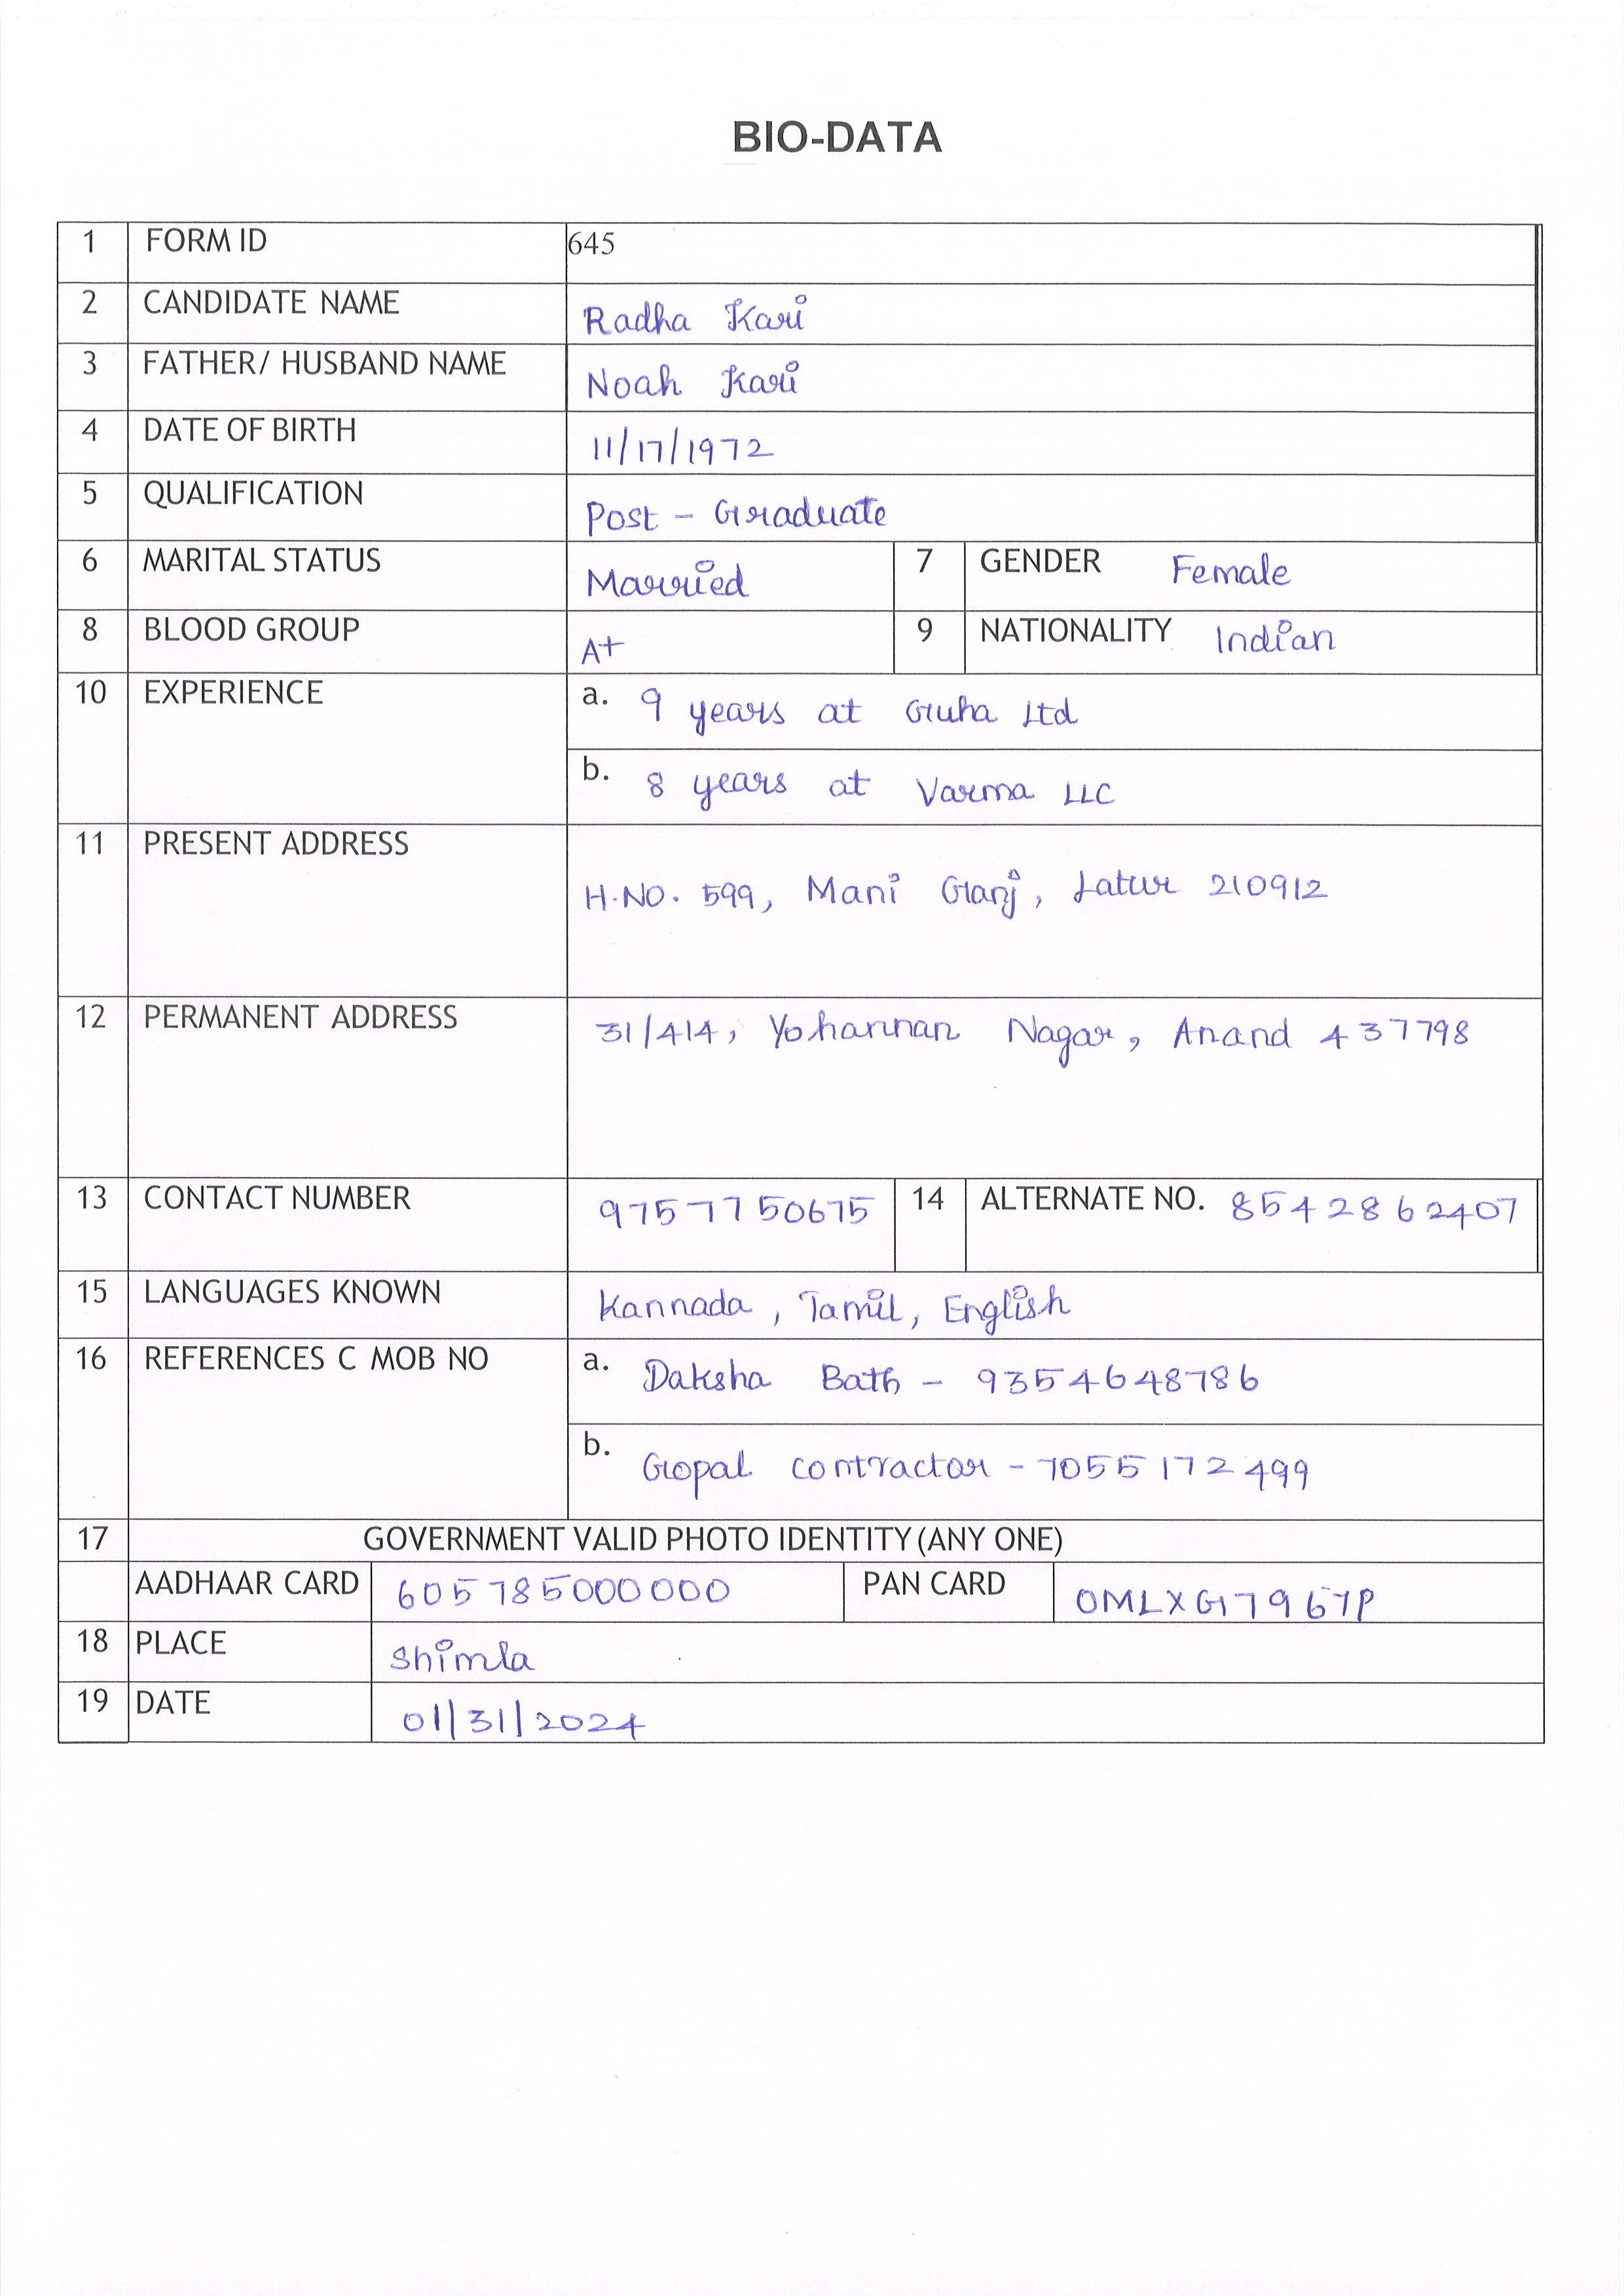 BIO-DATA
1 FORM ID 645
2 CANDIDATE NAME Radha Kari
3 FATHER/ HUSBAND NAME Noah Kari
4 DATE OF BIRTH 11/17/1972
5 QUALIFICATION Post - Graduate
6 MARITAL STATUS Married 7 GENDER Female
8 BLOOD GROUP A+ 9 NATIONALITY Indian
10 EXPERIENCE a. 9 years at Guha Ltd
b. 8 years at Varma LLC
11 PRESENT ADDRESS
H.NO. 599, Mani Ganj, Latur 210912
12 PERMANENT ADDRESS 31/414, Yohannan Nagar, Anand 437798
13 CONTACT NUMBER 9757750675 14 ALTERNATE NO. 8542862407
15 LANGUAGES KNOWN Kannada, Tamil, English
16 REFERENCES C MOB NO a. Daksha Bath - 9354648786
b. Gopal contractor - 7055172499
17 GOVERNMENT VALID PHOTO IDENTITY (ANY ONE)
AADHAAR CARD 605785000000 PAN CARD OMLXG7967P
18 PLACE Shimla
19 DATE 01/31/2024